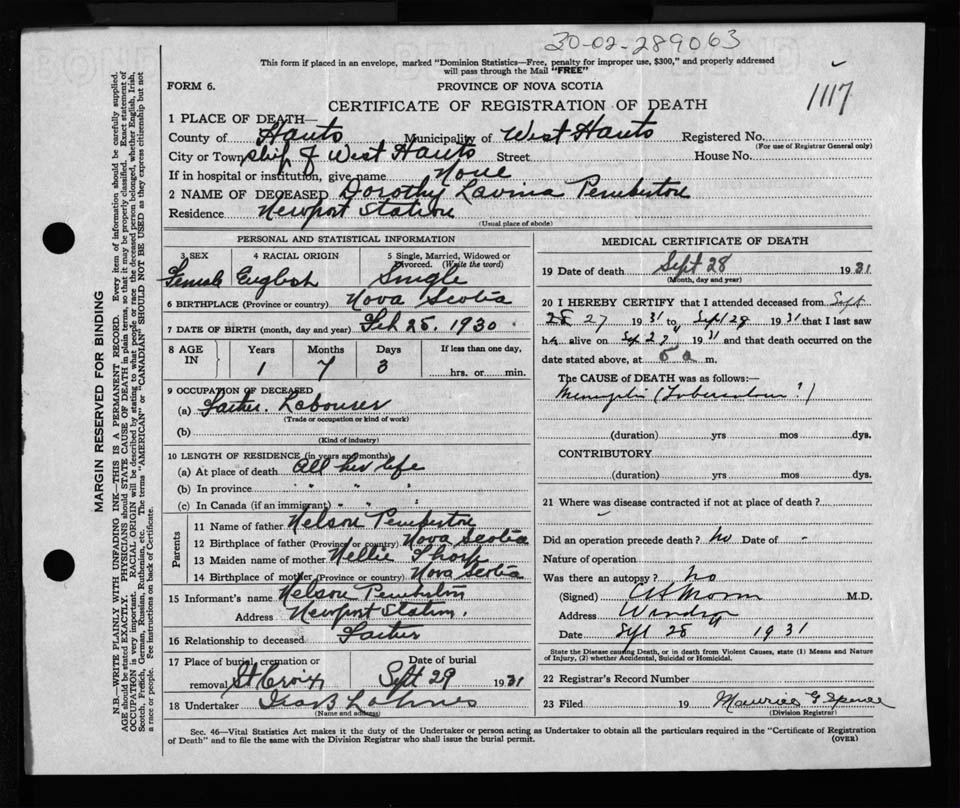 30-02-289063
This form if placed in an envelope, marked "Dominion Statistics—Free, penalty for improper use, $300," and properly addressed
will pass through the Mail "FREE"
1117
FORM 6.
PROVINCE OF NOVA SCOTIA
CERTIFICATE OF REGISTRATION OF DEATH
1 PLACE OF DEATH—
County of Hants Municipality of West Hants Registered No.
(For use of Registrar General only)
City or Township of West Hants Street House No.
If in hospital or institution, give name None
2 NAME OF DECEASED Dorothy Lavina Pemberton
Residence Newport Station
(Usual place of abode)
PERSONAL AND STATISTICAL INFORMATION
3 SEX 4 RACIAL ORIGIN 5 Single, Married, Widowed or
Divorced. (Write the word)
Female English Single
6 BIRTHPLACE (Province or country) Nova Scotia
7 DATE OF BIRTH (month, day and year) Feb 25, 1930
8 AGE IN Years Months Days If less than one day,
1 7 3 hrs. or min.
9 OCCUPATION OF DECEASED
(a) Father. Labourer
(Trade or occupation or kind of work)
(b)
(Kind of industry)
10 LENGTH OF RESIDENCE (in years and months)
(a) At place of death All her life
(b) In province " " "
(c) In Canada (if an immigrant) " " "
Parents
11 Name of father Nelson Pemberton
12 Birthplace of father (Province or country) Nova Scotia
13 Maiden name of mother Nellie
14 Birthplace of mother (Province or country) Nova Scotia
15 Informant's name Nelson Pemberton
Address Newport Station.
16 Relationship to deceased Father
17 Place of burial, cremation or Date of burial
removal St Croix Sept 29 1931
18 Undertaker
(Name and address)
MEDICAL CERTIFICATE OF DEATH
19 Date of death Sept 28 1931
(Month, day and year)
20 I HEREBY CERTIFY that I attended deceased from Sept
27 1931 to Sept 28 1931 that I last saw
her alive on Sep 27 1931 and that death occurred on the
date stated above, at 5 a m.
The CAUSE of DEATH was as follows:—
(duration) yrs mos dys.
CONTRIBUTORY
(duration) yrs mos dys.
21 Where was disease contracted if not at place of death?
Did an operation precede death? no Date of -
Nature of operation
Was there an autopsy? no
(Signed) M.D.
Address Windsor
Date Sept 28 1931
State the Disease causing Death, or in death from Violent Causes, state (1) Means and Nature
of Injury, (2) whether Accidental, Suicidal or Homicidal.
22 Registrar's Record Number
23 Filed 19 Maurice G Spence
(Division Registrar)
Sec. 46—Vital Statistics Act makes it the duty of the Undertaker or person acting as Undertaker to obtain all the particulars required in the "Certificate of Registration
of Death" and to file the same with the Division Registrar who shall issue the burial permit.
(OVER)
MARGIN RESERVED FOR BINDING
N.B.—WRITE PLAINLY WITH UNFADING INK—THIS IS A PERMANENT RECORD. Every item of information should be carefully supplied.
AGE should be stated EXACTLY. PHYSICIANS should STATE CAUSE OF DEATH in plain terms, so that it may be properly classified. Exact statement of
OCCUPATION is very important. RACIAL ORIGIN will be described by stating to what people or race the deceased person belonged, whether English, Irish,
Scotch, French, German, Russian, Ruthenian, etc. The terms "AMERICAN" or "CANADIAN" SHOULD NOT BE USED as they express citizenship but not
a race or people. Fee instructions on back of Certificate.